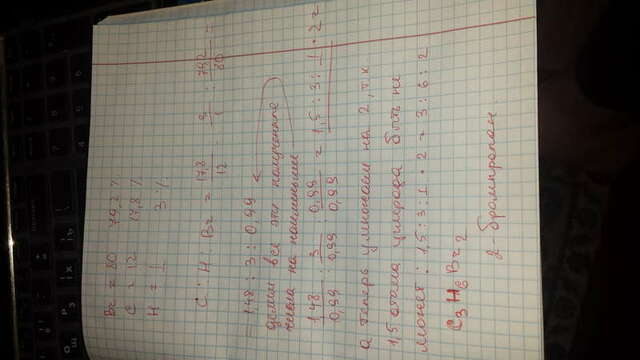 Br = 80 79,2 %
C = 12 17,8 %
H = 1 3 %
C : H : Br = 17,8/12 : 3/1 : 79,2/80 =
= 1,48 : 3 : 0,99
делим все эти полученные
числа на наименьшее
1,48/0,99 : 3/0,99 : 0,99/0,99 = 1,5 : 3 : 1 · 2 =
а теперь умножаем на 2, т.к.
1,5 атома углерода быть не
может: 1,5 : 3 : 1 · 2 = 3 : 6 : 2
C3H6Br2
2-бромпропан.